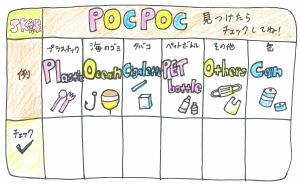 POCPOC
見つけたら
チェックしてね!
例
プラスチック
Plastic
海のゴミ
Ocean
タバコ
Cigarette
ペットボトル
PET
bottle
その他
Others
缶
Can
チェック